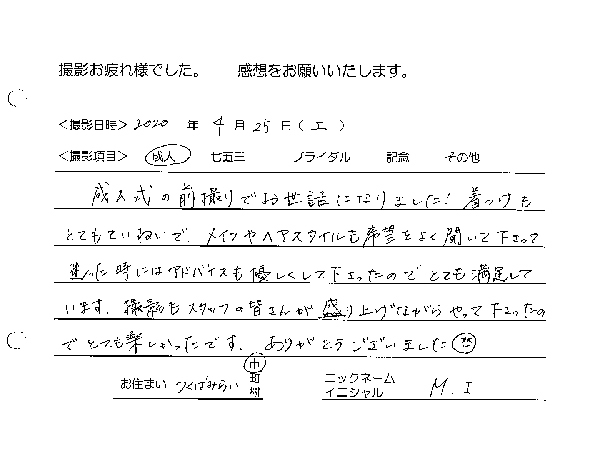 撮影お疲れ様でした。 感想をお願いいたします。
<撮影日時> 2020 年 4 月 25 日 ( 土 )
<撮影項目> 成人 七五三 ブライダル 記念 その他
成人式の前撮りでお世話になりました! 着つけも
とてもていねいで、メイクやヘアスタイルも希望をよく聞いて下さって
迷った時にはアドバイスも優しくして下さったのでとても満足して
います。撮影もスタッフの皆さんが盛り上げながらやって下さったの
でとても楽しかったです。ありがとうございました
お住まい つくばみらい 市 町 村 ニックネーム イニシャル M. I